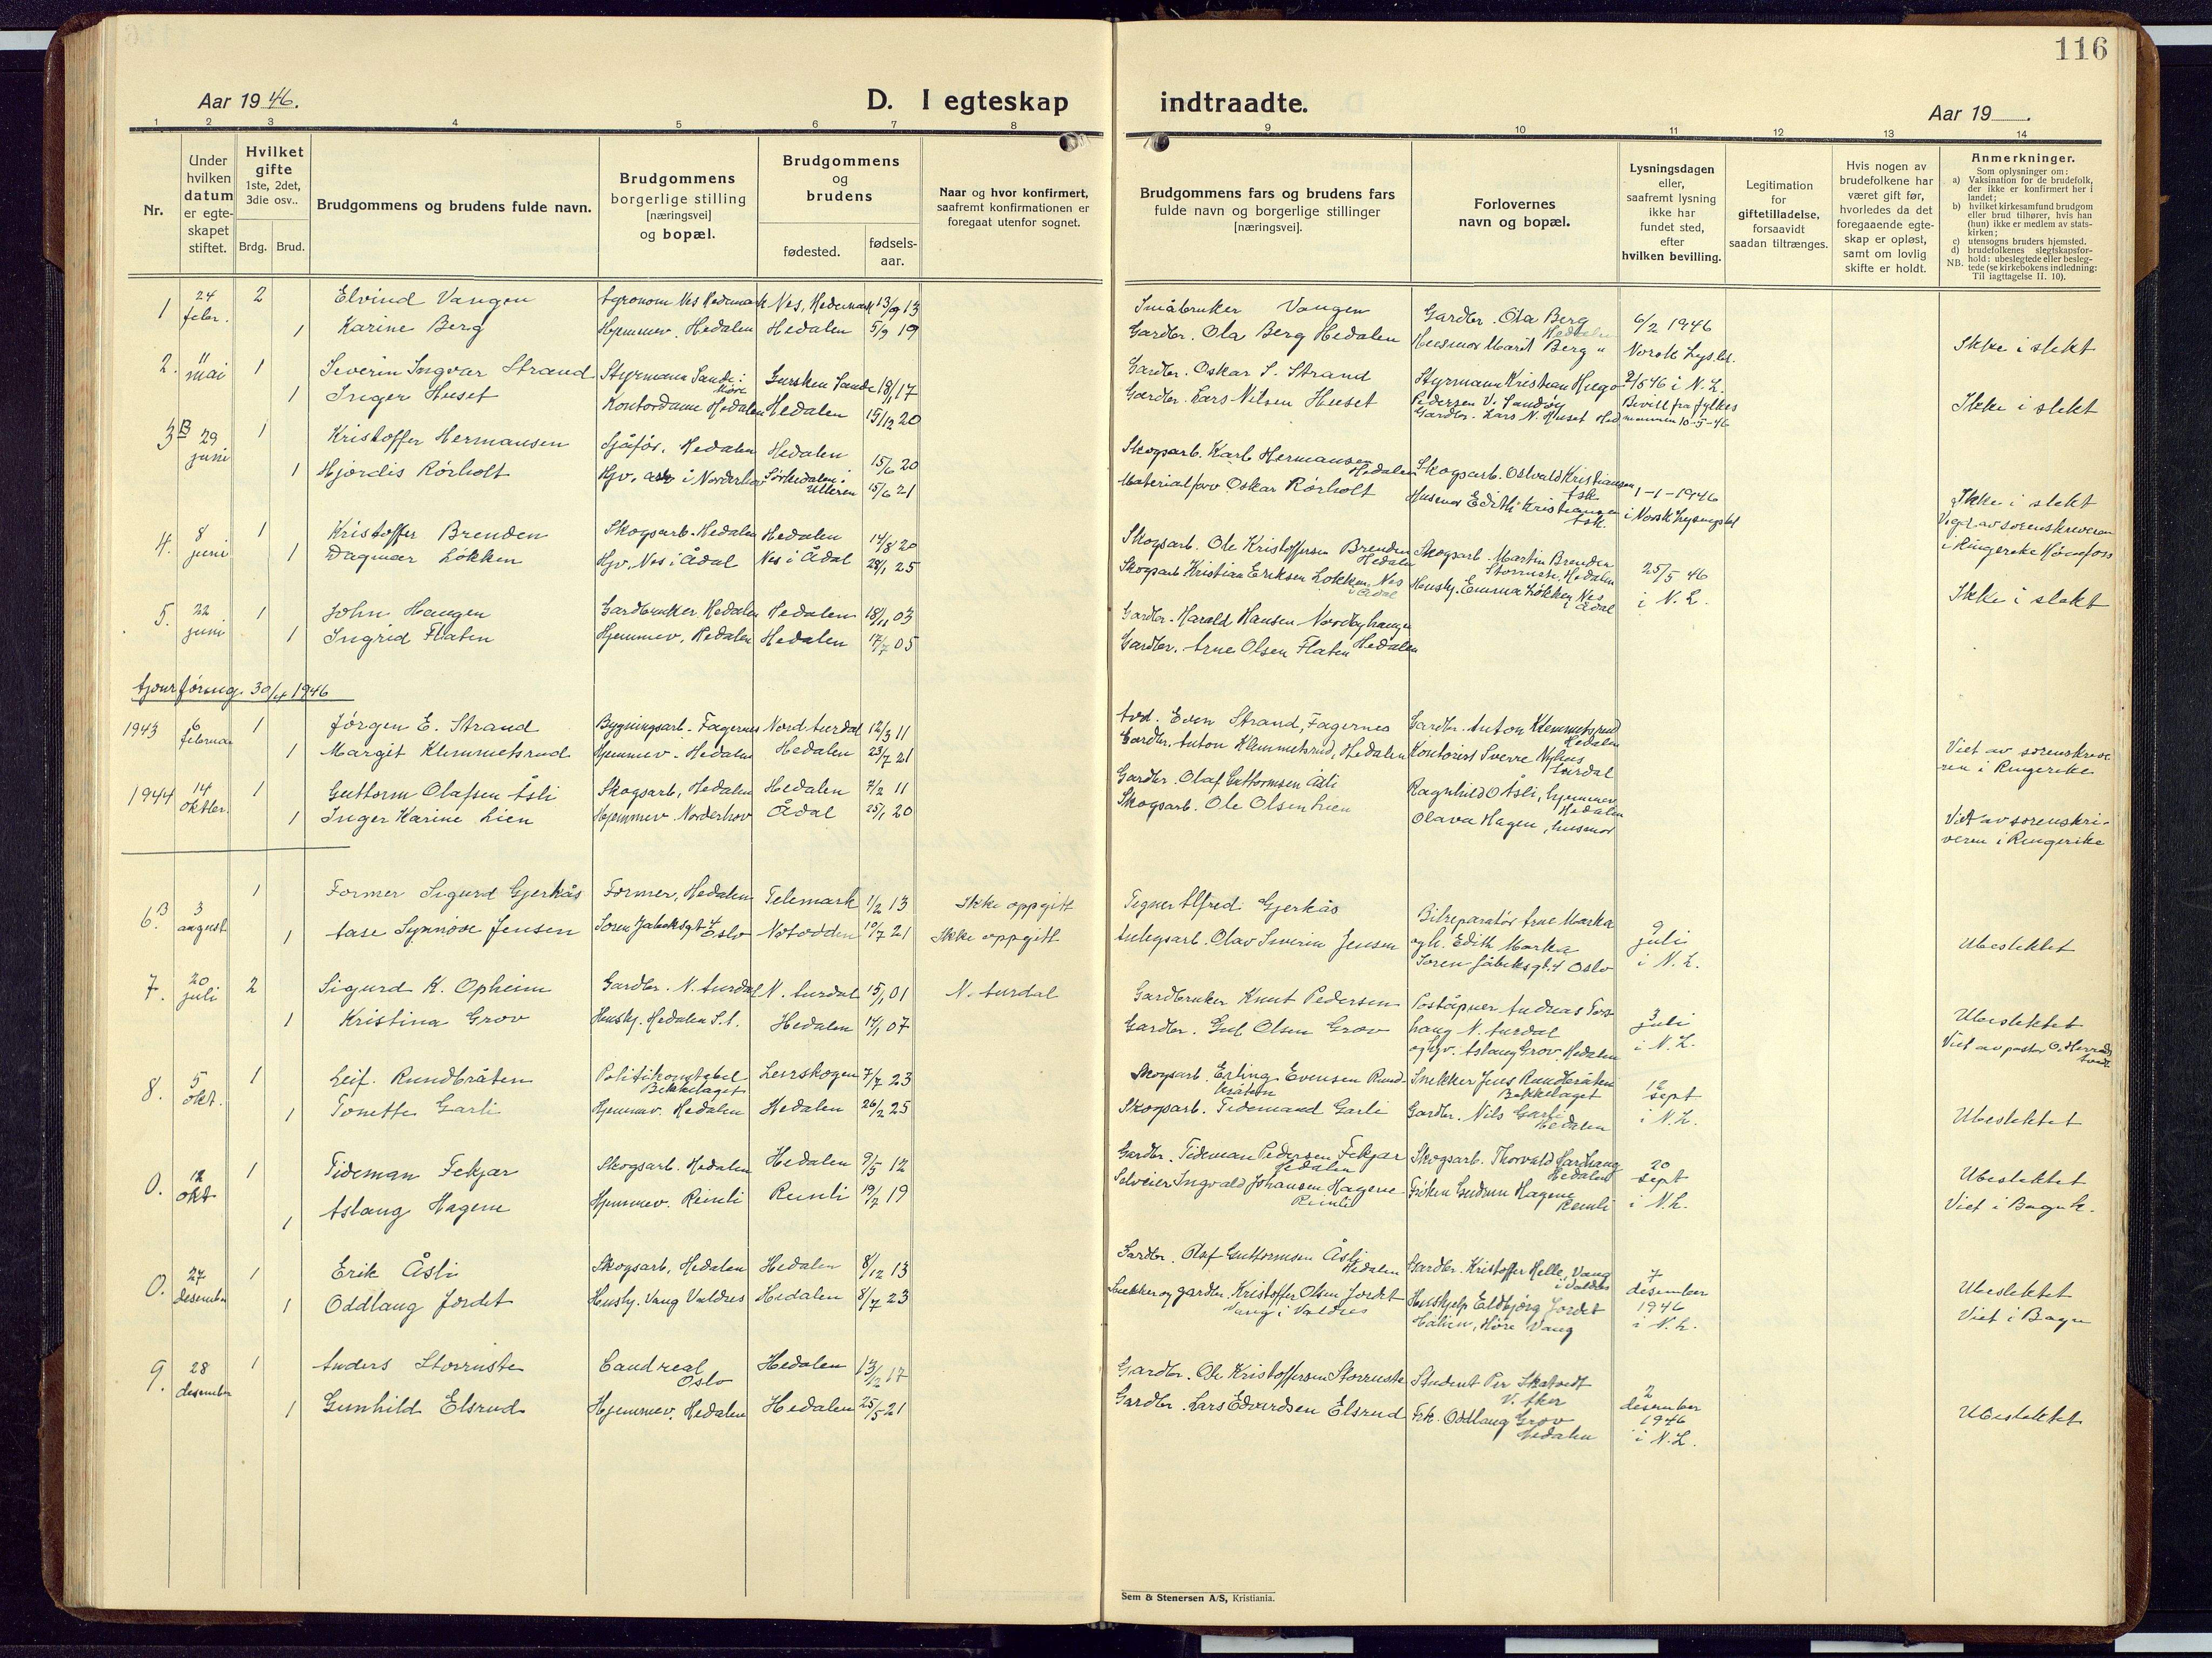 116
Aar 19 46.
D. I egteskap
indtraadte.
Aar 19
1 2 3 4 5 6 7 8 9 10 11 12 13 14
Nr.
Under hvilken datum er egteskapet stiftet.
Hvilket gifte
1ste, 2det, 3die osv..
Brdg. Brud.
Brudgommens og brudens fulde navn.
Brudgommens borgerlige stilling [næringsvei] og bopæl.
Brudgommens og brudens
fødested.
fødselsaar.
Naar og hvor konfirmert, saafremt konfirmationen er foregaat utenfor sognet.
Brudgommens fars og brudens fars fulde navn og borgerlige stillinger [næringsvei].
Forlovernes navn og bopæl.
Lysningsdagen eller, saafremt lysning ikke har fundet sted, efter hvilken bevilling.
Legitimation for giftetilladelse, forsaavidt saadan tiltrænges.
Hvis nogen av brudefolkene har været gift før, hvorledes da det foregaaende egteskap er opløst, samt om lovlig skifte er holdt.
Anmerkninger.
Som oplysninger om:
a) Vaksination for de brudefolk, der ikke er konfirmert her i landet;
b) hvilket kirkesamfund brudgom eller brud tilhører, hvis han (hun) ikke er medlem av statskirken;
c) utensogns bruders hjemsted.
d) brudefolkenes slegtskapsforhold: ubeslegtede eller beslegtede (se kirkebokens indledning: NB. Til iagttagelse II. 10).
1 24 febr. 2 Elvind Vangen Agronom Nes Hedemark Nes, Hedemark 13/9 13 Småbruker Vangen Gardbr. Ola Berg Hedalen 6/2 1946
1 Karine Berg Hjemmev. Hedalen Hedalen 5/9 19 Gardbr. Ola Berg Hedalen Husmor Marit Berg " Norsk Lys.bl. Ikke i slekt
2. 11 mai 1 Severin Ingvar Strand Styrmann Sande i Møre Gursken Sande 18/1 17 Gardbr. Oskar S. Strand Styrmann Kristian Hugo Pedersen 2/5 46 i N. L.
1 Inger Huset Kontordame Hedalen Hedalen 15/12 20 Gardbr. Lars Nilsen Huset Gardbr. Lars N. Huset Hed. Bevill fra fylkesmannen 10-5-46 Ikke i slekt
3 B 29 juni 1 Kristoffer Hermansen Sjåfør, Hedalen Hedalen 15/6 20 Skogsarb. Karl Hermansen Hedalen Skogsarb. Osvald Kristiansen Ask 1-1-1946
1 Hjørdis Rørholt Hjv. Ask i Norderhov Sørkedalen i Ulleren 15/6 21 Materialforv Oskar Rørholt Husmor Edith Kristiansen Ask i Norsk Lysningsbl Ikke i slekt
Vigd av sorenskriveren i Ringerike Hønefoss
4. 8 juni 1 Kristoffer Brenden Skogsarb. Hedalen Hedalen 14/8 20 Skogsarb. Ole Kristoffersen Brenden Hedalen Skogsarb. Martin Brenden Storruste, Hedalen 25/5 46
1 Dagmar Løkken Hjv. Nes i Ådal Nes i Ådal 28/1 25 Skogsarb Kristian Eriksen Løkken, Nes i Ådal Hushj. Emma Løkken Nes i Ådal i N. L. Ikke i slekt
5. 22 juni 1 John Haugen Gardbruker Hedalen Hedalen 18/11 03 Gardbr. Harald Hansen Nordbyhaugen
1 Ingrid Flaten Hjemmev, Hedalen Hedalen 17/7 05 Gardbr. Arne Olsen Flaten Hedalen
Ajourføring. 30/4 1946
1943 6 februar 1 Jørgen E. Strand Bygningsarb. Fagernes Nord Aurdal 12/3 11 Avd. Even Strand, Fagernes Gardbr. Anton Klemmetsrud Hedalen
1 Margit Klemmetsrud Hjemmev. Hedalen Hedalen 23/7 21 Gardbr. Anton Klemmetsrud, Hedalen Kontorist Sverre Nyhus Aurdal Viet av sorenskriveren i Ringerike
1944 14 oktbr. 1 Guttorm Olafsen Åsli Skogsarb, Hedalen Hedalen 7/2 11 Gardbr. Olaf Guttormsen Åsli Ragnhild O Åsli, hjemmev Hedalen
1 Inger Karine Lien Hjemmev. Norderhov Ådal 25/1 20 Skogsarb. Ole Olsen Lien Olava Hagen, husmor Viet av sorenskriveren i Ringerike
6. B 3 august 1 Former Sigurd Gjerkås Former, Hedalen Telemark 1/2 13 Ikke oppgitt Tegner Alfred Gjerkås Bilreparatør Arne Marka 9 juli
1 Aase Synnøve Jensen Søren Jabeksgt 4 Oslo Notodden 10/7 21 Ikke oppgitt Anlegsarb. Olav Severin Jensen og h. Edith Marka Søren Jåbeksgt. 4 Oslo i N. L. Ubeslektet
7. 20 juli 2 Sigurd K. Opheim Gardbr. N. Aurdal N. Aurdal 15/1 01 N. Aurdal Gardbruker Knut Pedersen Poståpner Andreas Forshaug N. Aurdal 3 juli Ubeslektet
1 Kristina Grov Hushj. Hedalen S.A. Hedalen 14/1 07 Gardbr. Gul Olsen Grov og hjv. Aslaug Grov Hedalen i N. L. Viet av pastor O. Herrads tveit
8. 5 okt. 1 Leif. Rundbråten Politikonstabel Bekkelaget Leirskogen 7/7 23 Skogsarb. Erling Evensen Rundbråten Snekker Jens Rundbråten Bekkelaget 12 sept
1 Tonette Garli Hjemmev. Hedalen Hedalen 26/2 25 Skogsarb. Tidemand Garli Gardbr. Nils Garli Hedalen i N. L. Ubeslektet
0. 12 okt 1 Tideman Fekjar Skogsarb. Hedalen Hedalen 9/5 12 Gardbr. Tideman Pedersen Fekjar Hedalen Skogsarb. Thorvald Gardhaug Hedalen 20 sept Ubeslektet
1 Aslaug Hagene Hjemmev. Reinli Reinli 19/7 19 Selveier Ingvald Johansen Hagene Reinli Frøken Gudrun Hagene Reinli i N. L. Viet i Bagn k.
0. 27 desember 1 Erik Åsli Skogsarb, Hedalen Hedalen 8/12 13 Gardbr. Olaf Guttormsen Åsli Hedalen Gardbr. Kristoffer Helle, Vang i Valdres 7 desember Ubeslektet
1 Oddlaug Jordet Hushj. Vang Valdres Hedalen 8/7 23 Snekker og gardbr. Kristoffer Olsen Jordet Vang i Valdres Hushjelp Eldbjørg Jordet Høre Vang 1946 i N. L. Viet i Bagn
9. 28 desember 1 Anders Storruste Cand real Oslo Hedalen 13/12 17 Gardbr. Ole Kristoffersen Storruste Student Per Skatvedt V. Aker 2 desember
1 Gunhild Elsrud Hjemmev. Hedalen Hedalen 25/5 21 Gardbr. Lars Edvardsen Elsrud Frk. Oddlaug Grov Hedalen 1946 i N. L. Ubeslektet
Sem & Stenersen A/S, Kristiania.